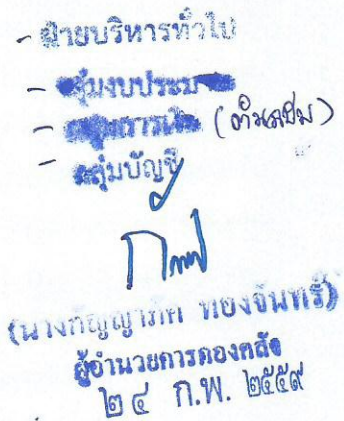 - ฝ่ายบริหารทั่วไป
- กลุ่มงบประมาณ
- กลุ่มการเงิน
- กลุ่มบัญชี
(นางกัญญาภัค ทองจันทร์)
ผู้อำนวยการกองคลัง
๒๔ ก.พ. ๒๕๕๙